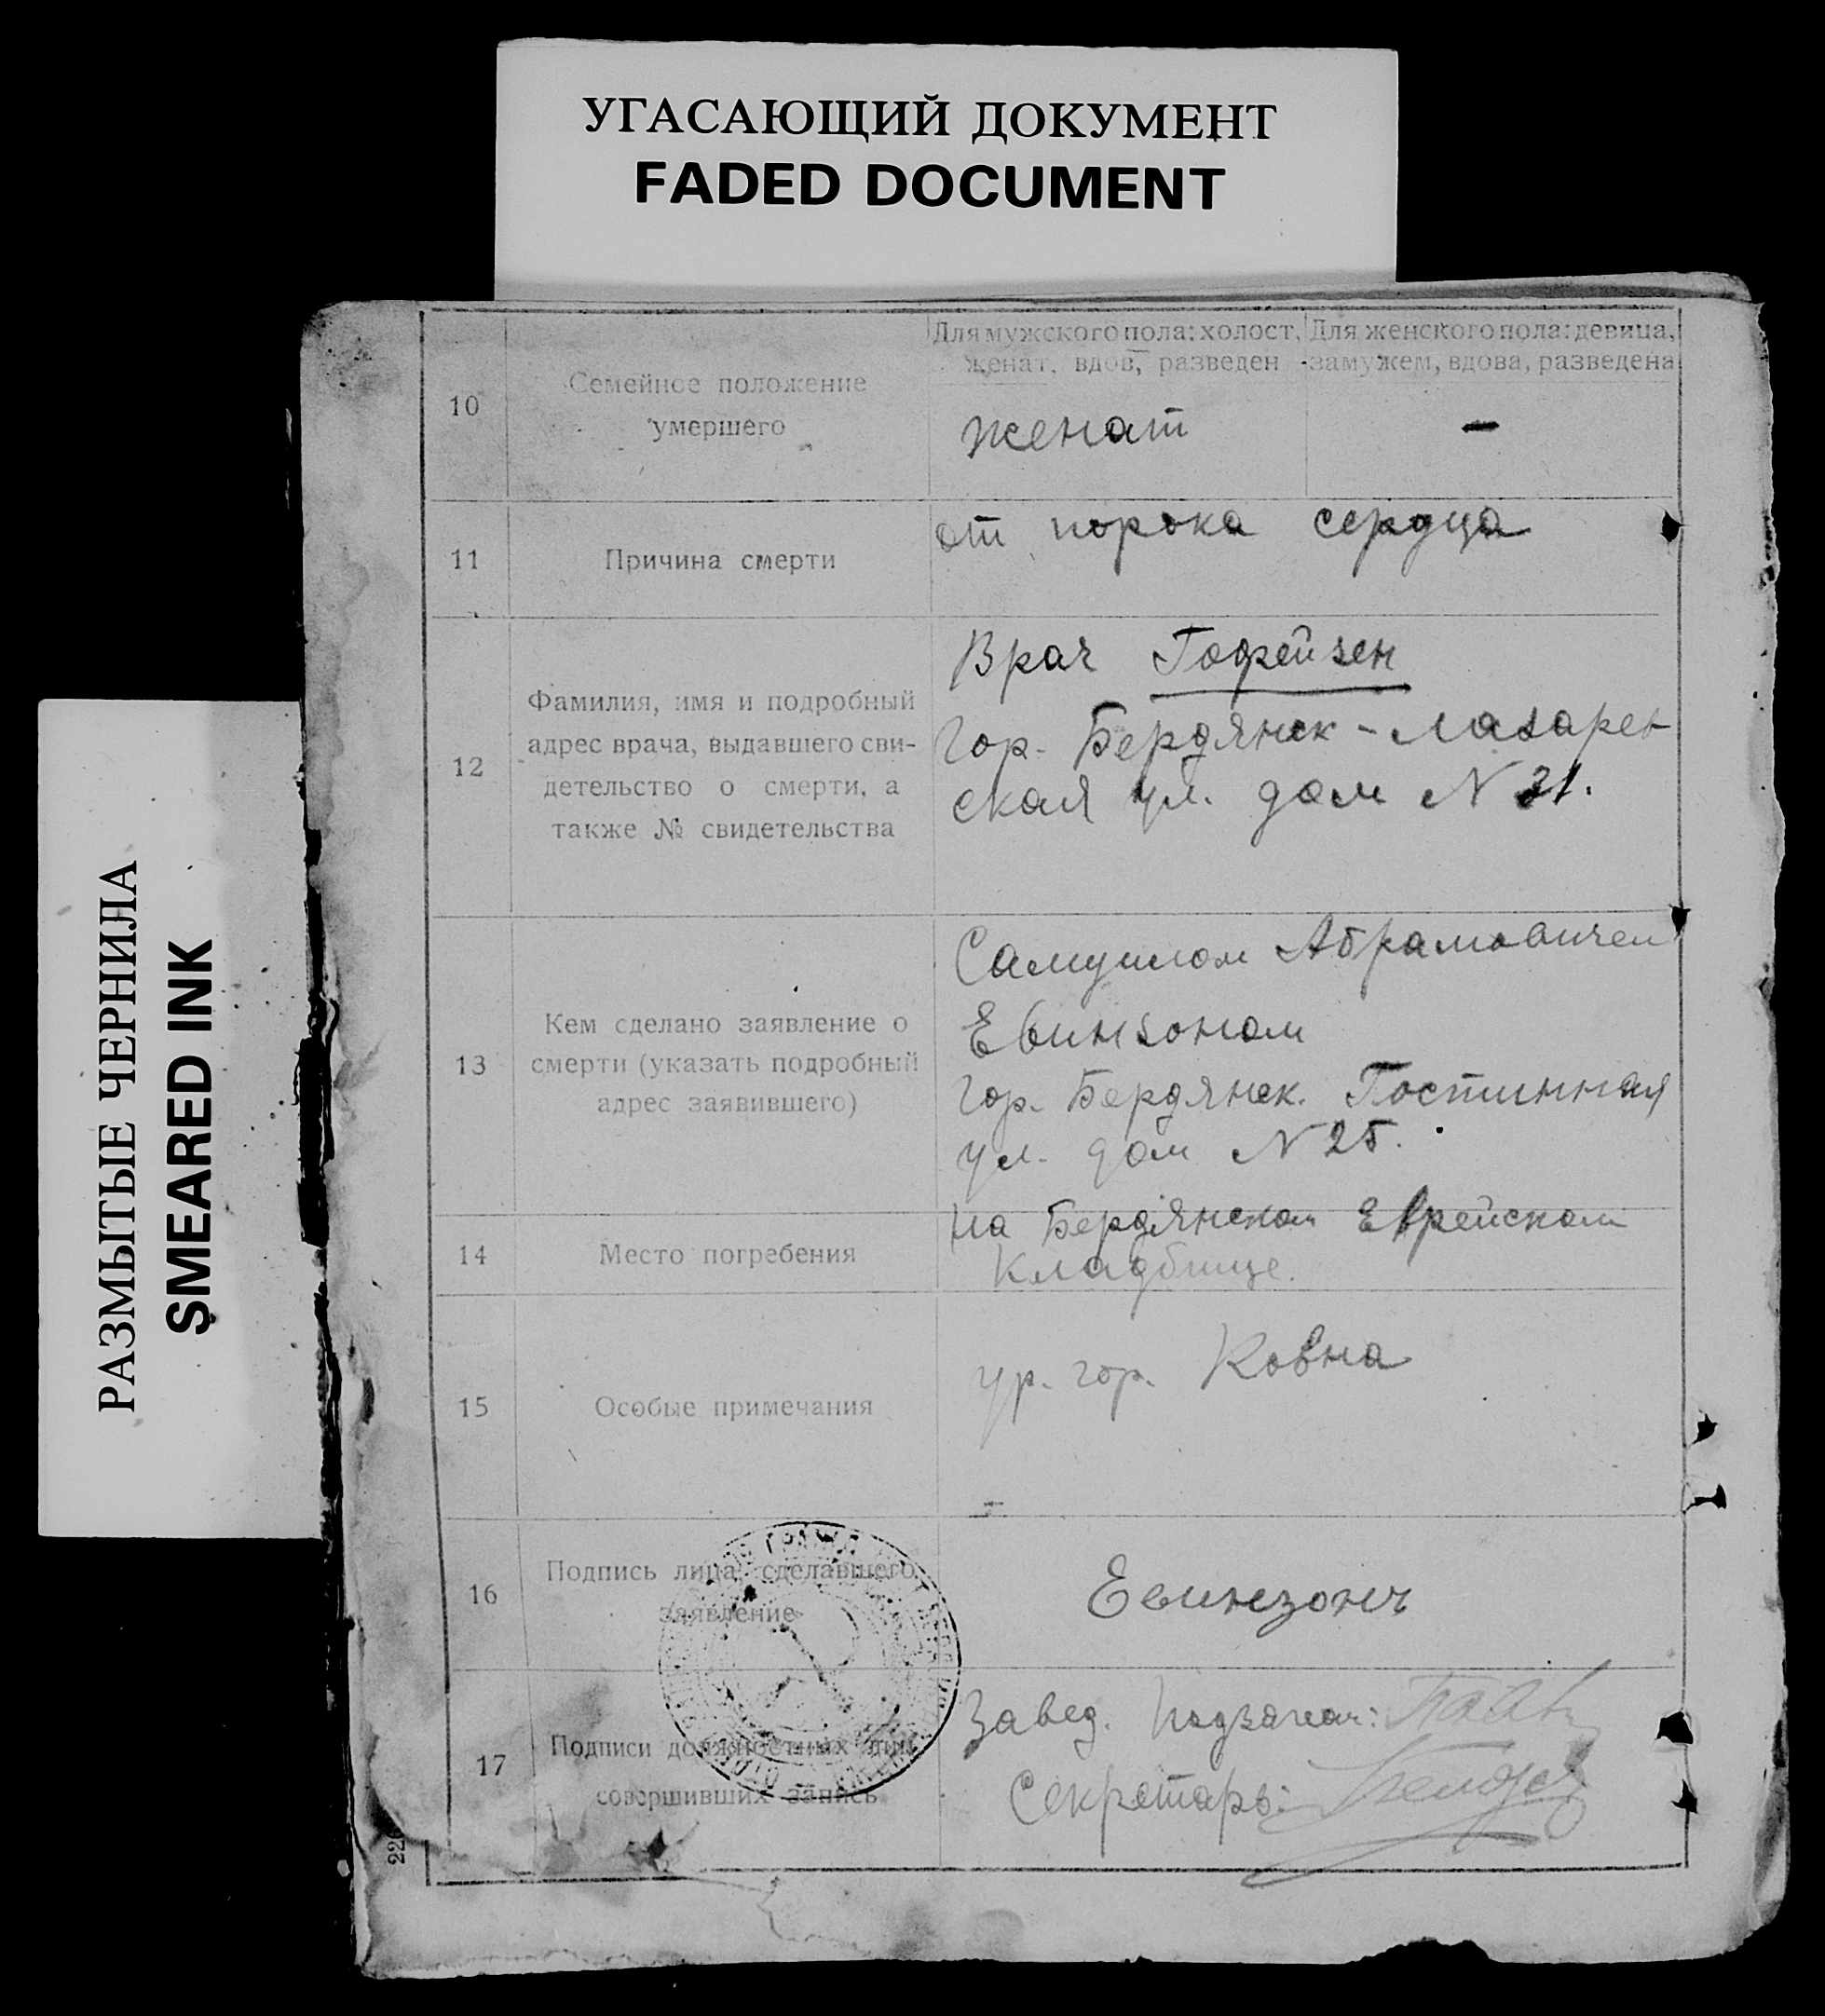 УГАСАЮЩИЙ ДОКУМЕНТ
FADED DOCUMENT
РАЗМЫТЫЕ ЧЕРНИЛА
SMEARED INK
10
Семейное положение
умершего
Для мужского пола: холост,
женат, вдов, разведен
Для женского пола: девица,
замужем, вдова, разведена
женат
—
11
Причина смерти
от порока сердца
12
Фамилия, имя и подробный
адрес врача, выдавшего сви-
детельство о смерти, а
также № свидетельства
Врач Гофейзен
Гор. Бердянск - Лазарет
ская ул. дом N 31.
13
Кем сделано заявление о
смерти (указать подробный
адрес заявившего)
Самуилом Абрамовичем
Евинзоном
гор. Бердянск. Гостинная
ул. дом N 25.
14
Место погребения
на Бердянском Еврейском
кладбище.
15
Особые примечания
ур. гор. Ковна
16
Подпись лица, сделавшего
заявление
Евинзонъ
17
Подписи должностных лиц,
совершивших запись
Завед. Подзагсом:
Секретарь: